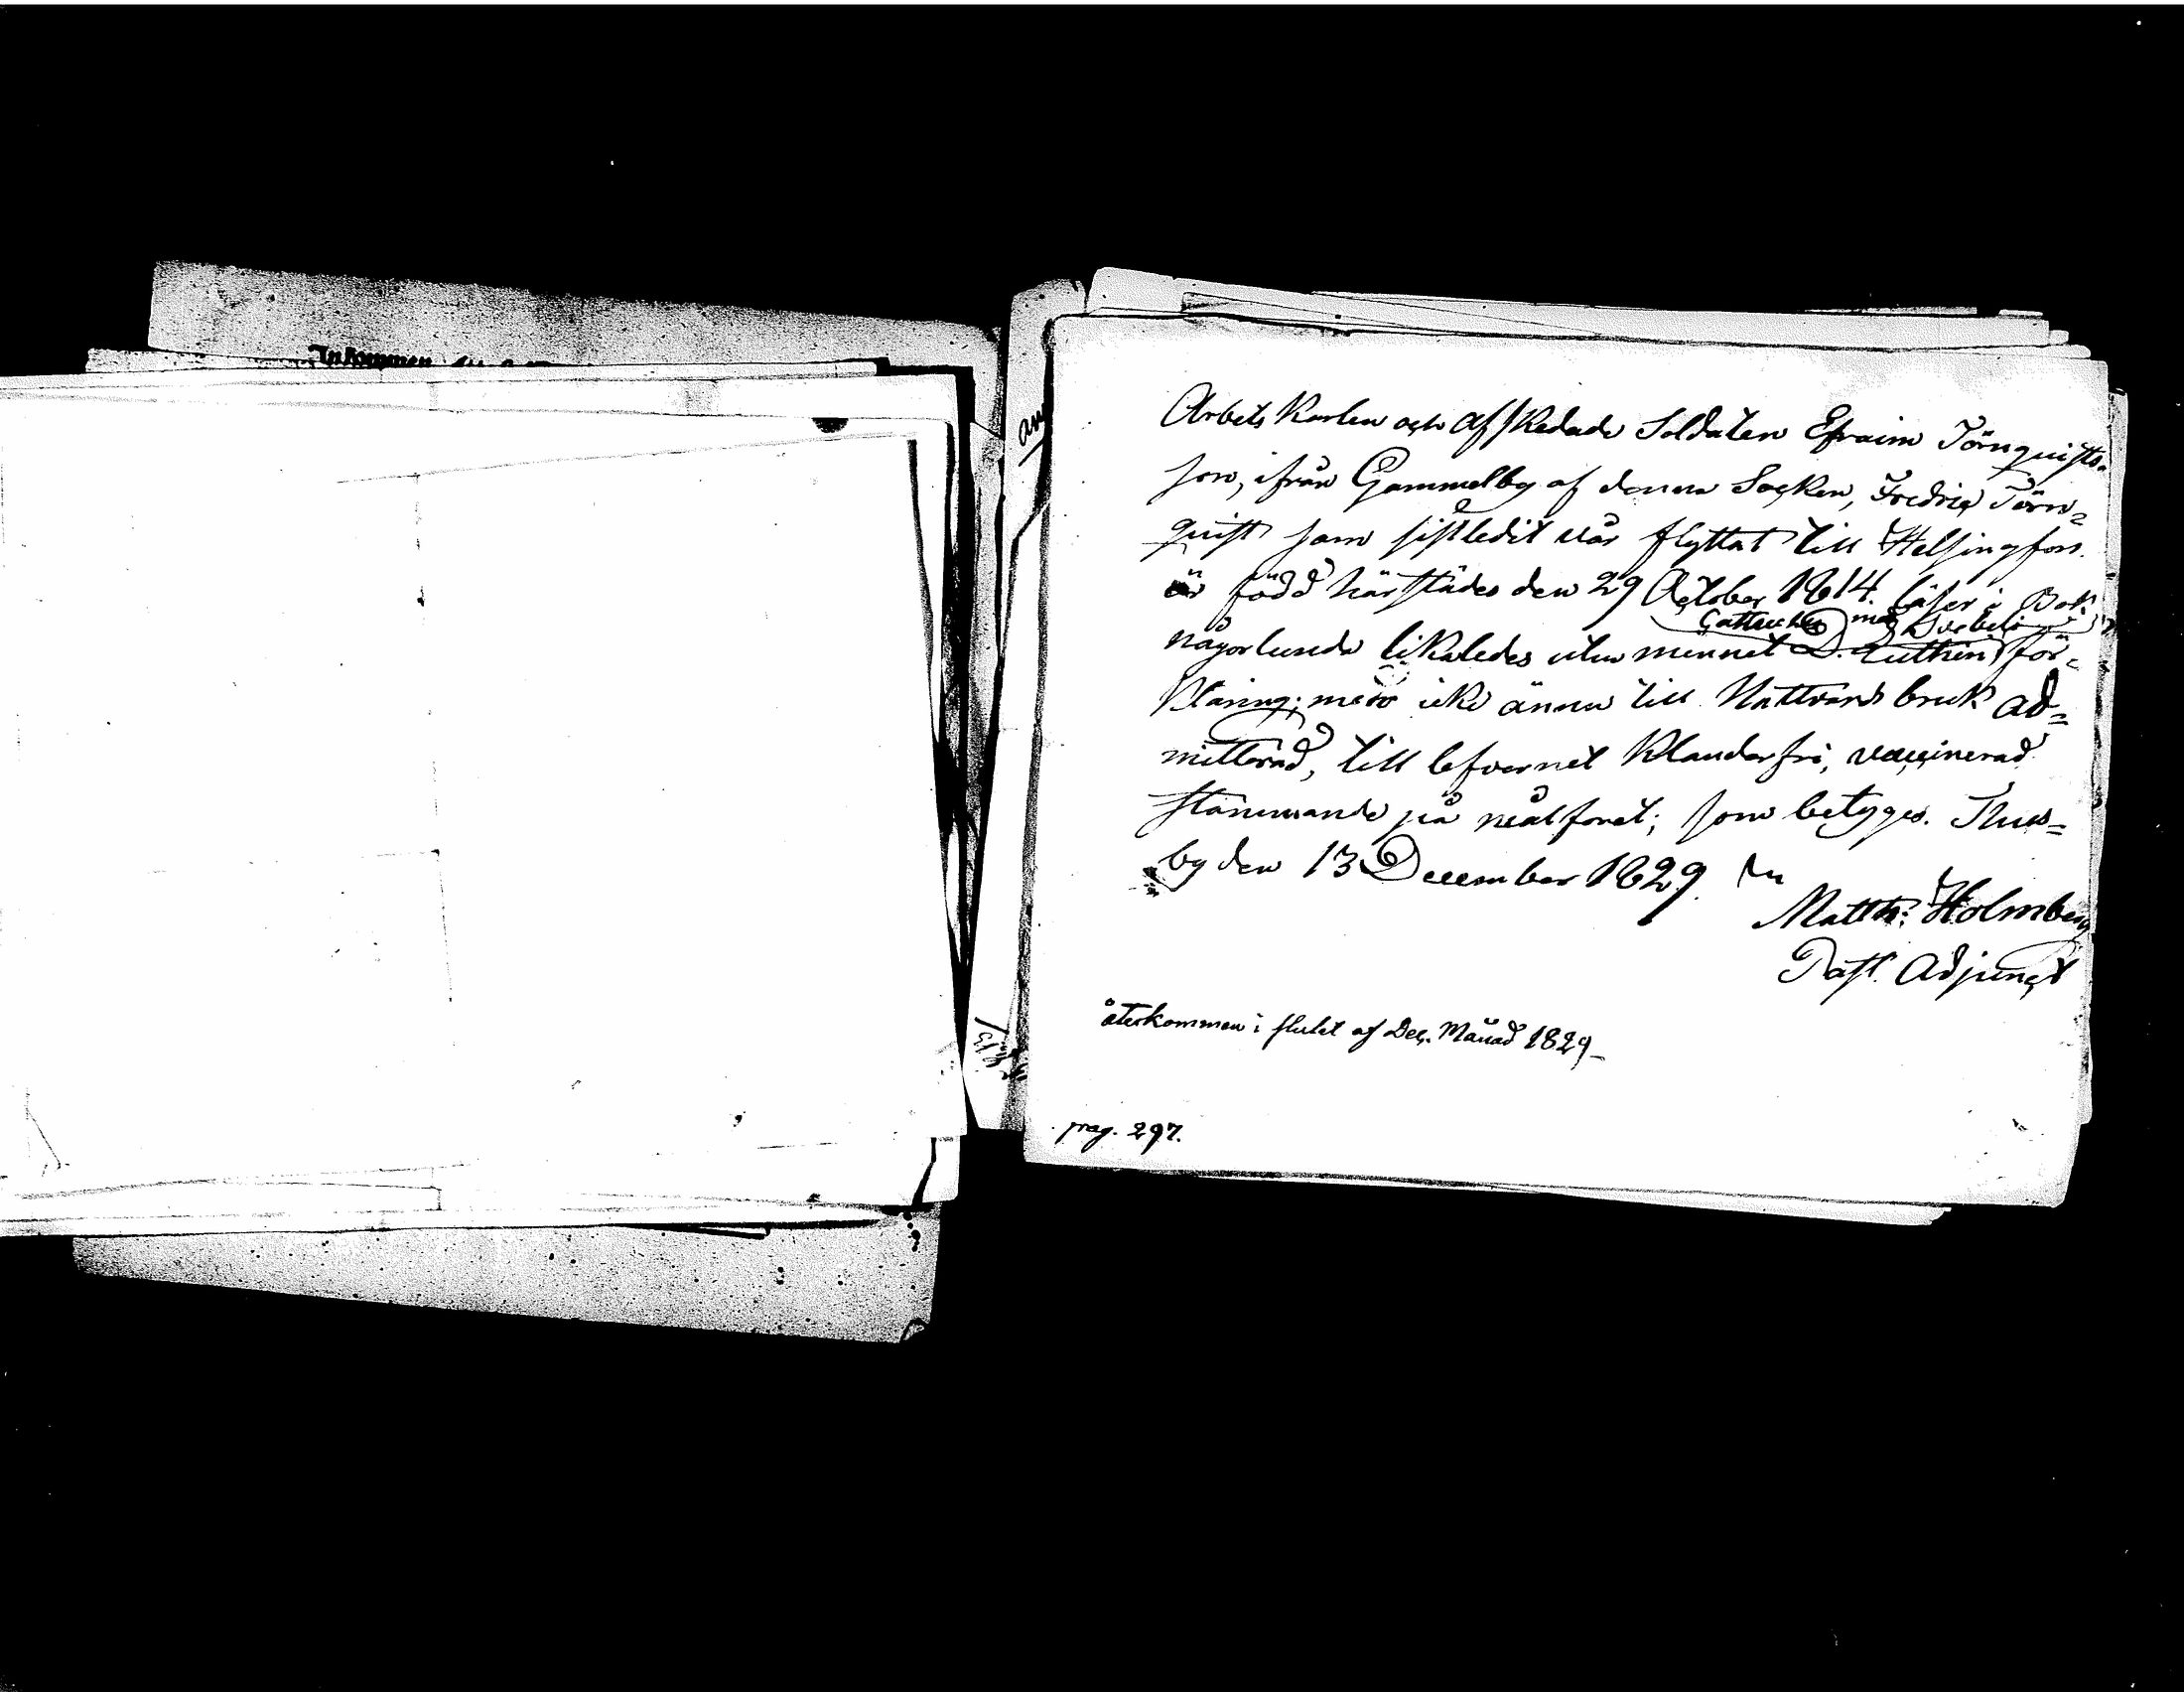 Inkommen
Arbets Karlen och afskedade Soldaten Efraim Törnquists
son, ifrån Gammelby af denna Socken, Fredric Törn=
quist som sistledit vår flyttat till Helsingfors.
är född härstädes den 29 October 1814. läser i Bok
Cattechesen med Svebelii
någorlunda likaledes utur minnet D. Lutheri för=
klaring; men icke ännu till Nattvards bruk ad=
mitterad, till lefvernet Klanderfri, vaccinerad
stämmande på målforet; som betygges. Thus=
by den 13 December 1829.
Matth: Holmberg
Past. Adjunct
återkommen i slutet af Dec. Månad 1829_
pag. 297.